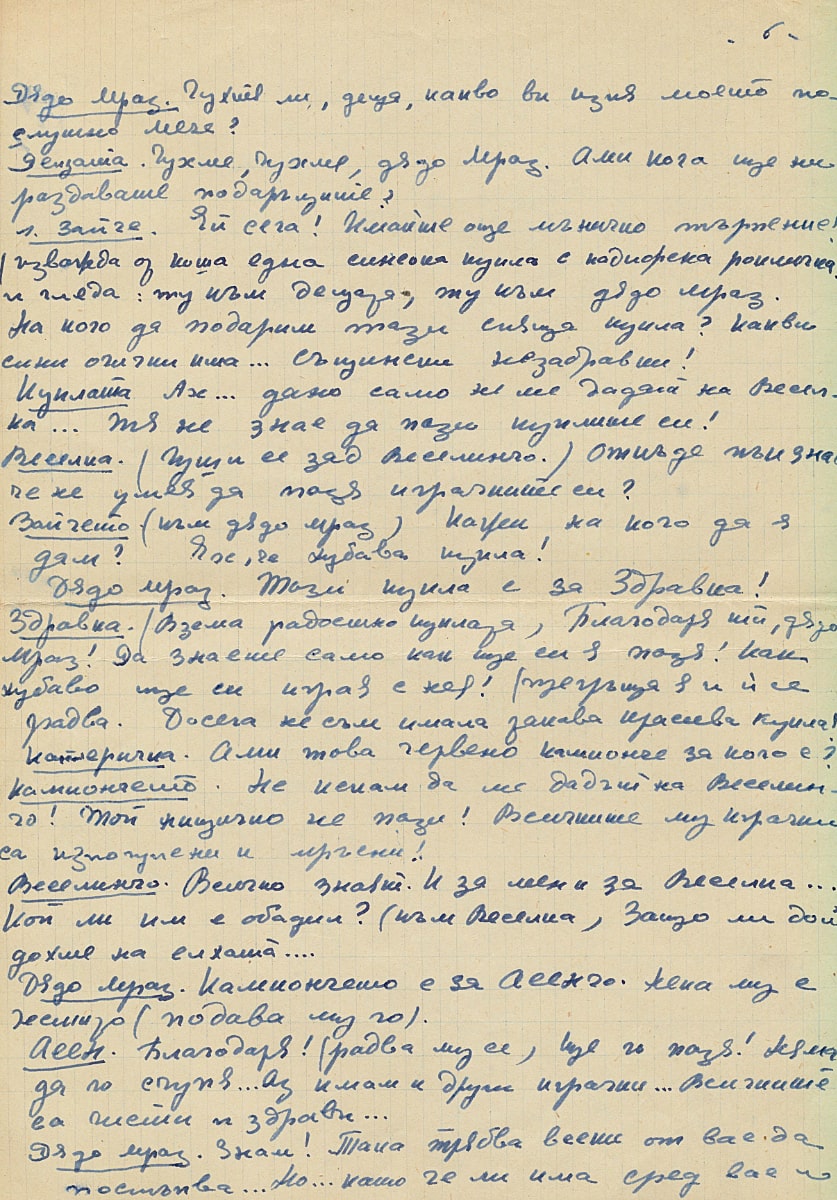 - 6 -
Дядо Мраз. Чухте ли, деца, какво ви изпя моето по-
слушно мече?
Децата. Чухме, чухме, дядо Мраз. Ами кога ще ни
раздаваше подаръците?
Зайче. Ей сега! Имайте още мъничко търпение!
(изважда от коша една синеока кукла с кадифена рокличка
и гледа: ту към децата, ту към дядо Мраз.
На кого да подарим тази спяща кукла? Какви
сини очички има... същински незабравки!
Куклата Ах... дано само не ме дадат на Весел-
ка... Тя не знае да пази куклите си!
Веселка. (Гуши се зад Веселинчо.) Откъде пък зная
че не умея да пазя играчките си?
Зайчето (към дядо Мраз) Кажи на кого да я
дам? Ях, че хубава кукла!
Дядо Мраз. Тази кукла е за Здравка!
Здравка. (Взема радостно куклата, Благодаря ти, дядо
Мраз! Да знаеше само как ще си я пазя! Как
хубаво ще си играя с нея! (прегръща я и й се
радва. Досега не съм имала такава красива кукла!
Катеричка. Ами това червено камионче за кого е?
Камиончето. Не искам да ме дадът на Веселин-
чо! Той нищичко не пази! Всичките му играчки
са изпочупени и мръсни!
Веселинчо. Всичко знаят. И за мен и за Веселка...
Кой ли им е обадил? (към Веселка, Защо ли дой
дохме на елхата....
Дядо Мраз. Камиончето е за Асенчо. Нека му е
честито (подава му го).
Асен. Благодаря! (радва му се, Ще го пазя! Няма
да го счупя... Аз имам и други играчки... Всичките
са чисти и здрави...
Дядо Мраз. Знам! Така трябва всеки от вас да
постъпва... Но... като че ли има сред вас и